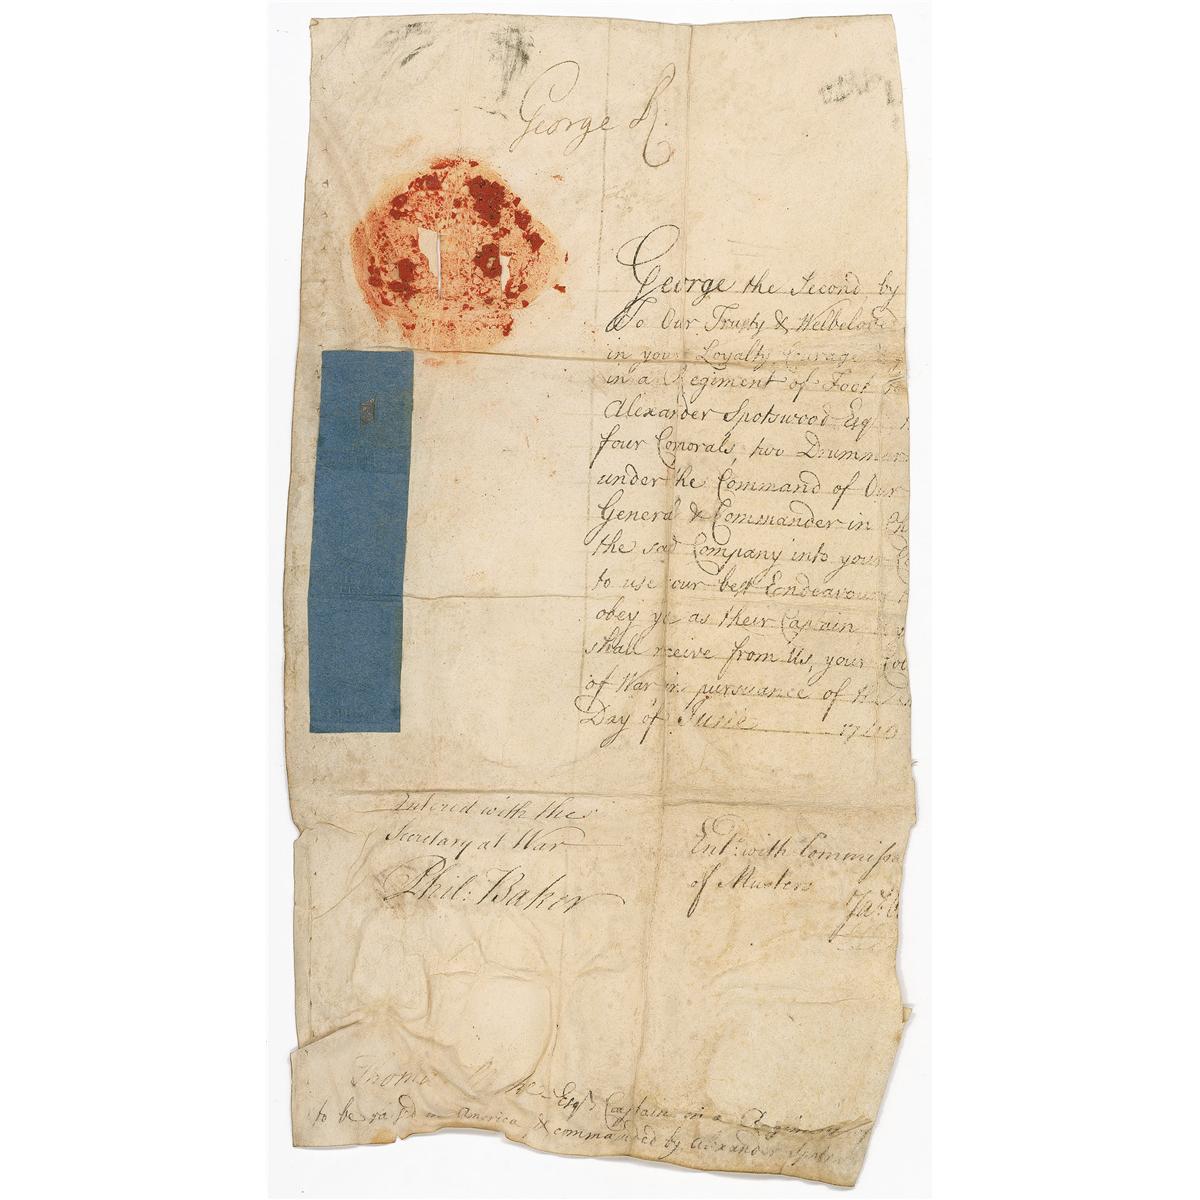 George R.
George the Second, by
To Our Trusty & Welbelove
in your Loyalty, Courage
in a Regiment of Foot
Alexander Spotswood Esqr
four Corporals, two Drummer
under the Command of Our
General & Commander in Ch
the sad Company into your
to use your best Endeavours
obey you as their Captain
shall receive from Us, your
of War in pursuance of the
Day of June 1740
Entered with the
Secretary at War
Phil: Baker
Entd. with Commissa
of Musters
Jas.
Thom Esqr. Captain in a Regiment of
to be raised in America, & commanded by Alexander Spots